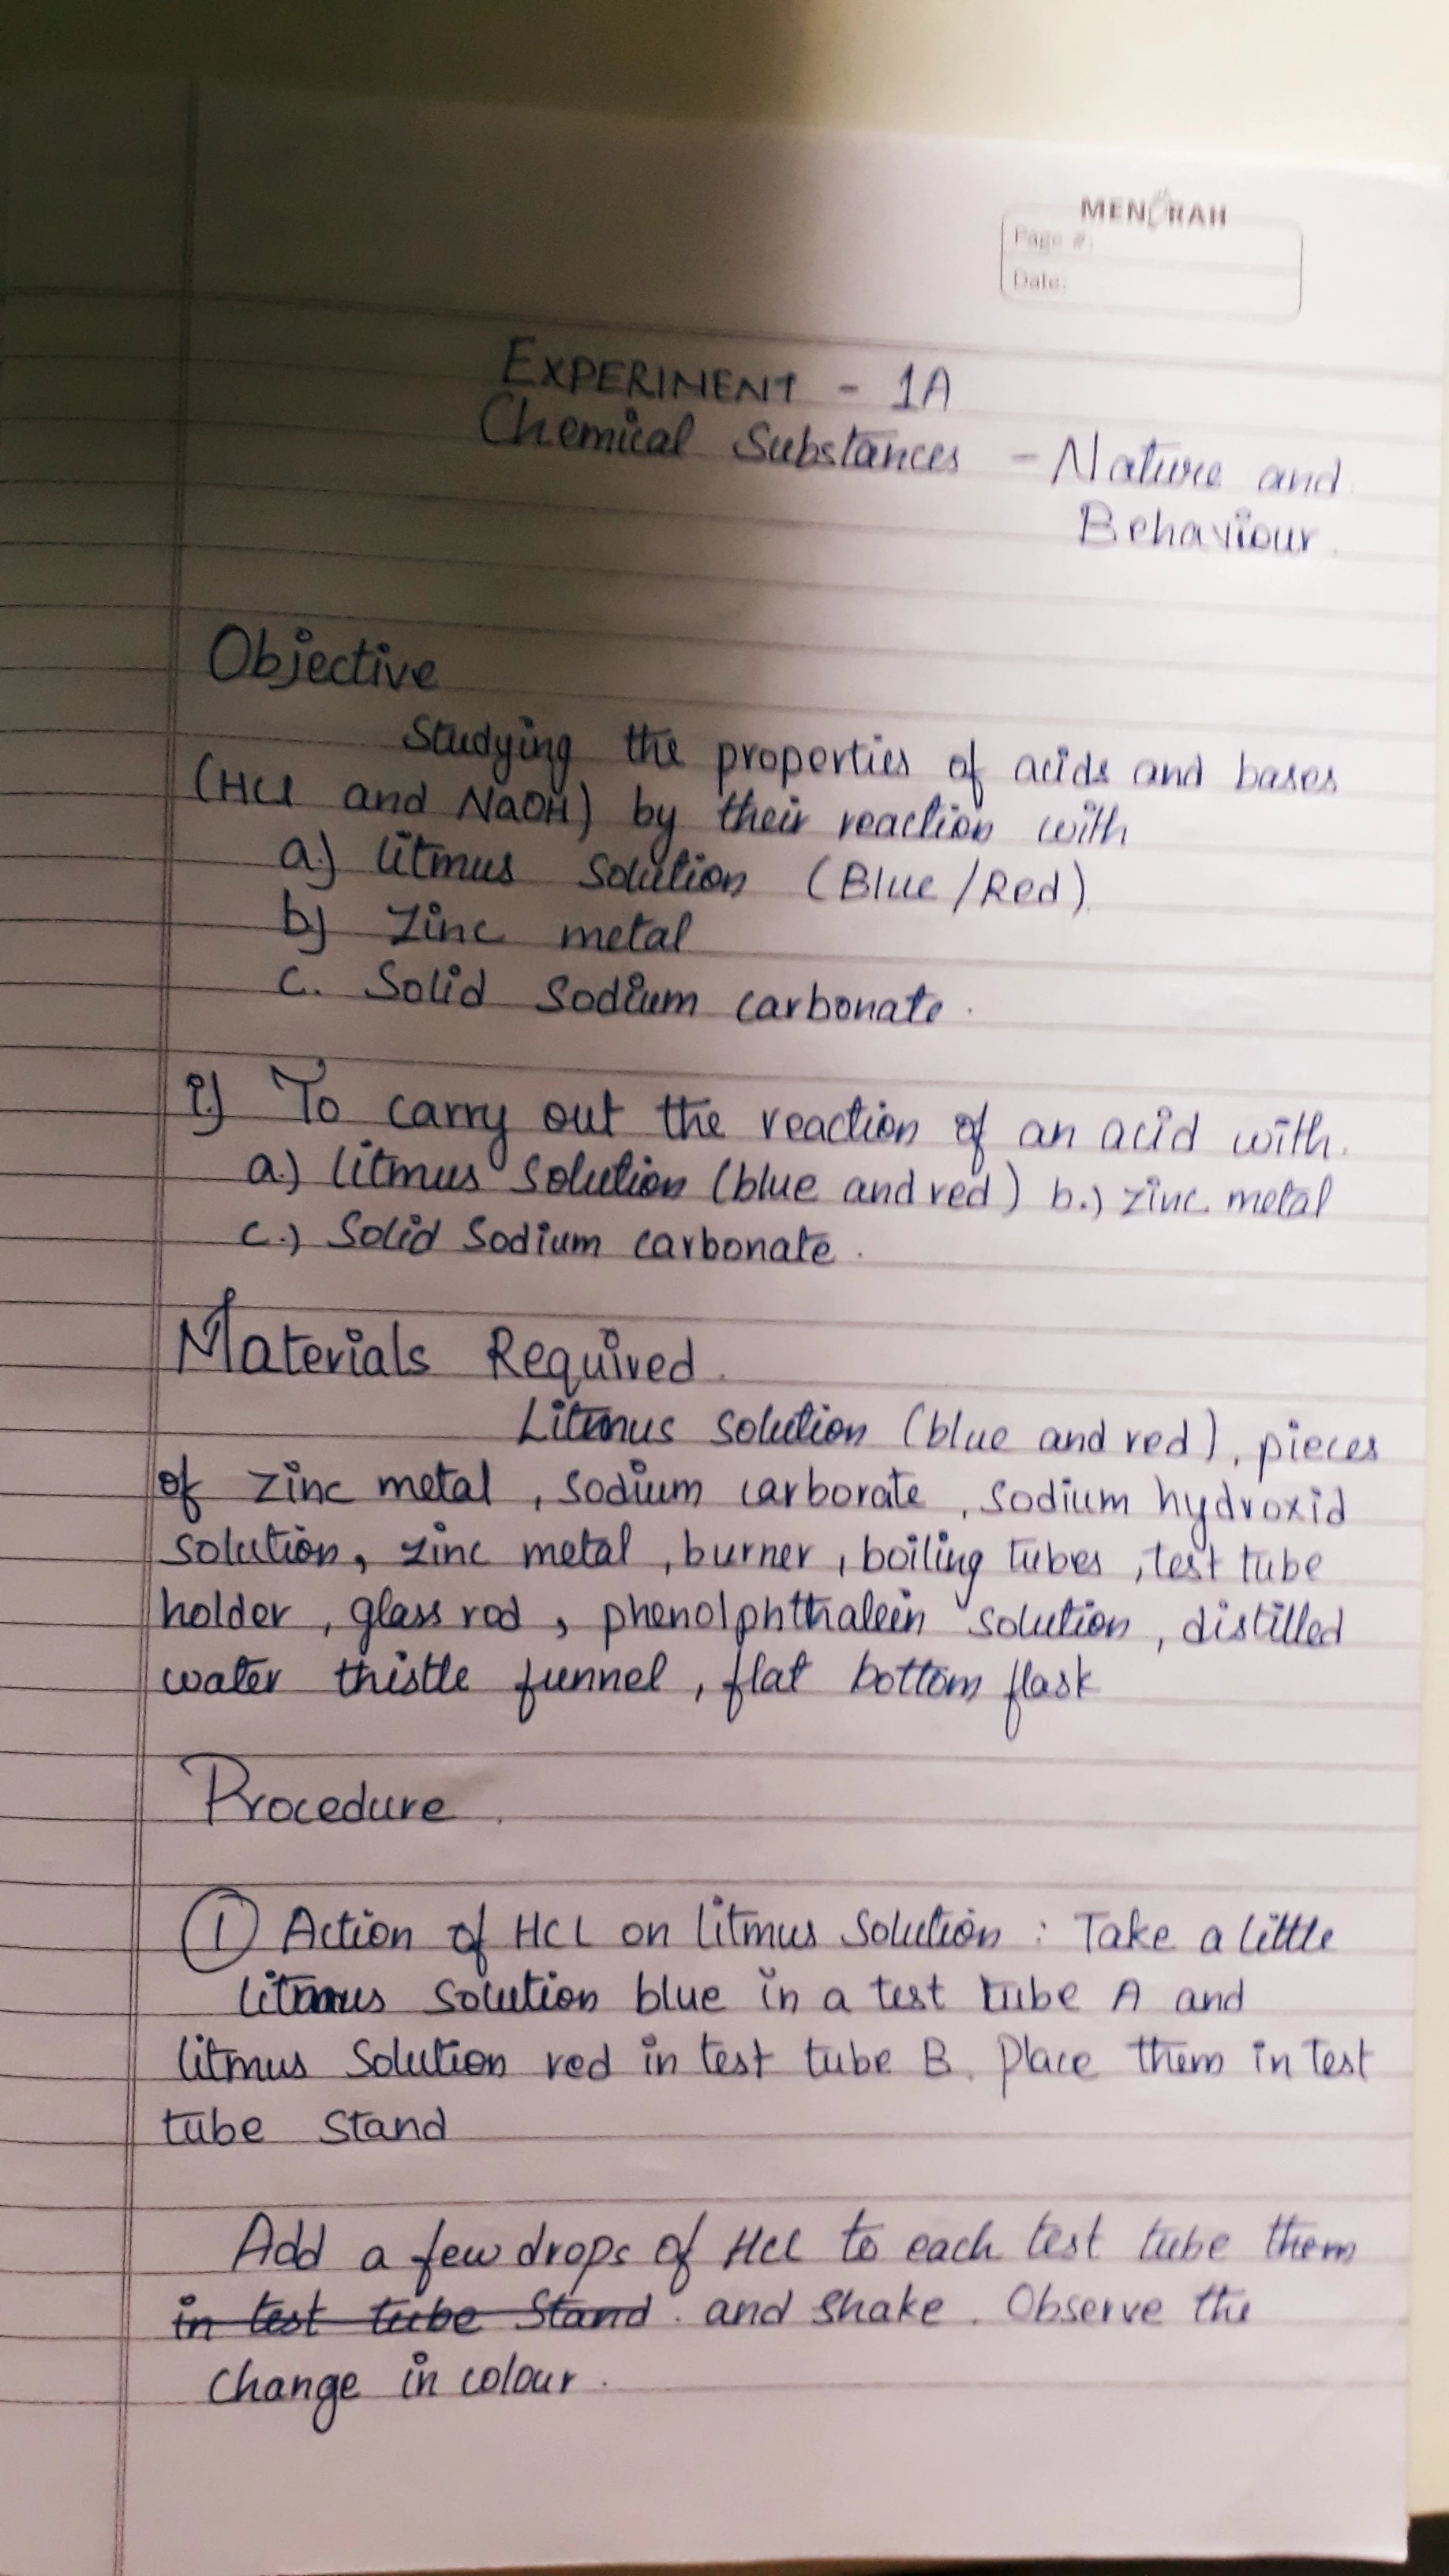 MENORAH
Page #:
Date:
EXPERIMENT - 1A
Chemical Substances - Nature and
Behaviour.
Objective
Studying the properties of acids and bases
(HCl and NaOH) by their reaction with
a.) litmus solution (Blue/Red).
b) Zinc metal
c. Solid Sodium carbonate.
i.) To carry out the reaction of an acid with.
a.) litmus solution (blue and red) b.) zinc metal
c.) Solid Sodium carbonate.
Materials Required.
Litmus solution (blue and red), pieces
of zinc metal, sodium carborate, sodium hydroxid
solution, zinc metal, burner, boiling tubes, test tube
holder, glass rod, phenolphthalein solution, distilled
water thistle funnel, flat bottom flask
Procedure.
① Action of HCL on litmus Solution : Take a little
litmus solution blue in a test tube A and
litmus Solution red in test tube B. Place them in test
tube Stand
Add a few drops of HCl to each test tube them
in test tube Stand. and shake. Observe the
change in colour.